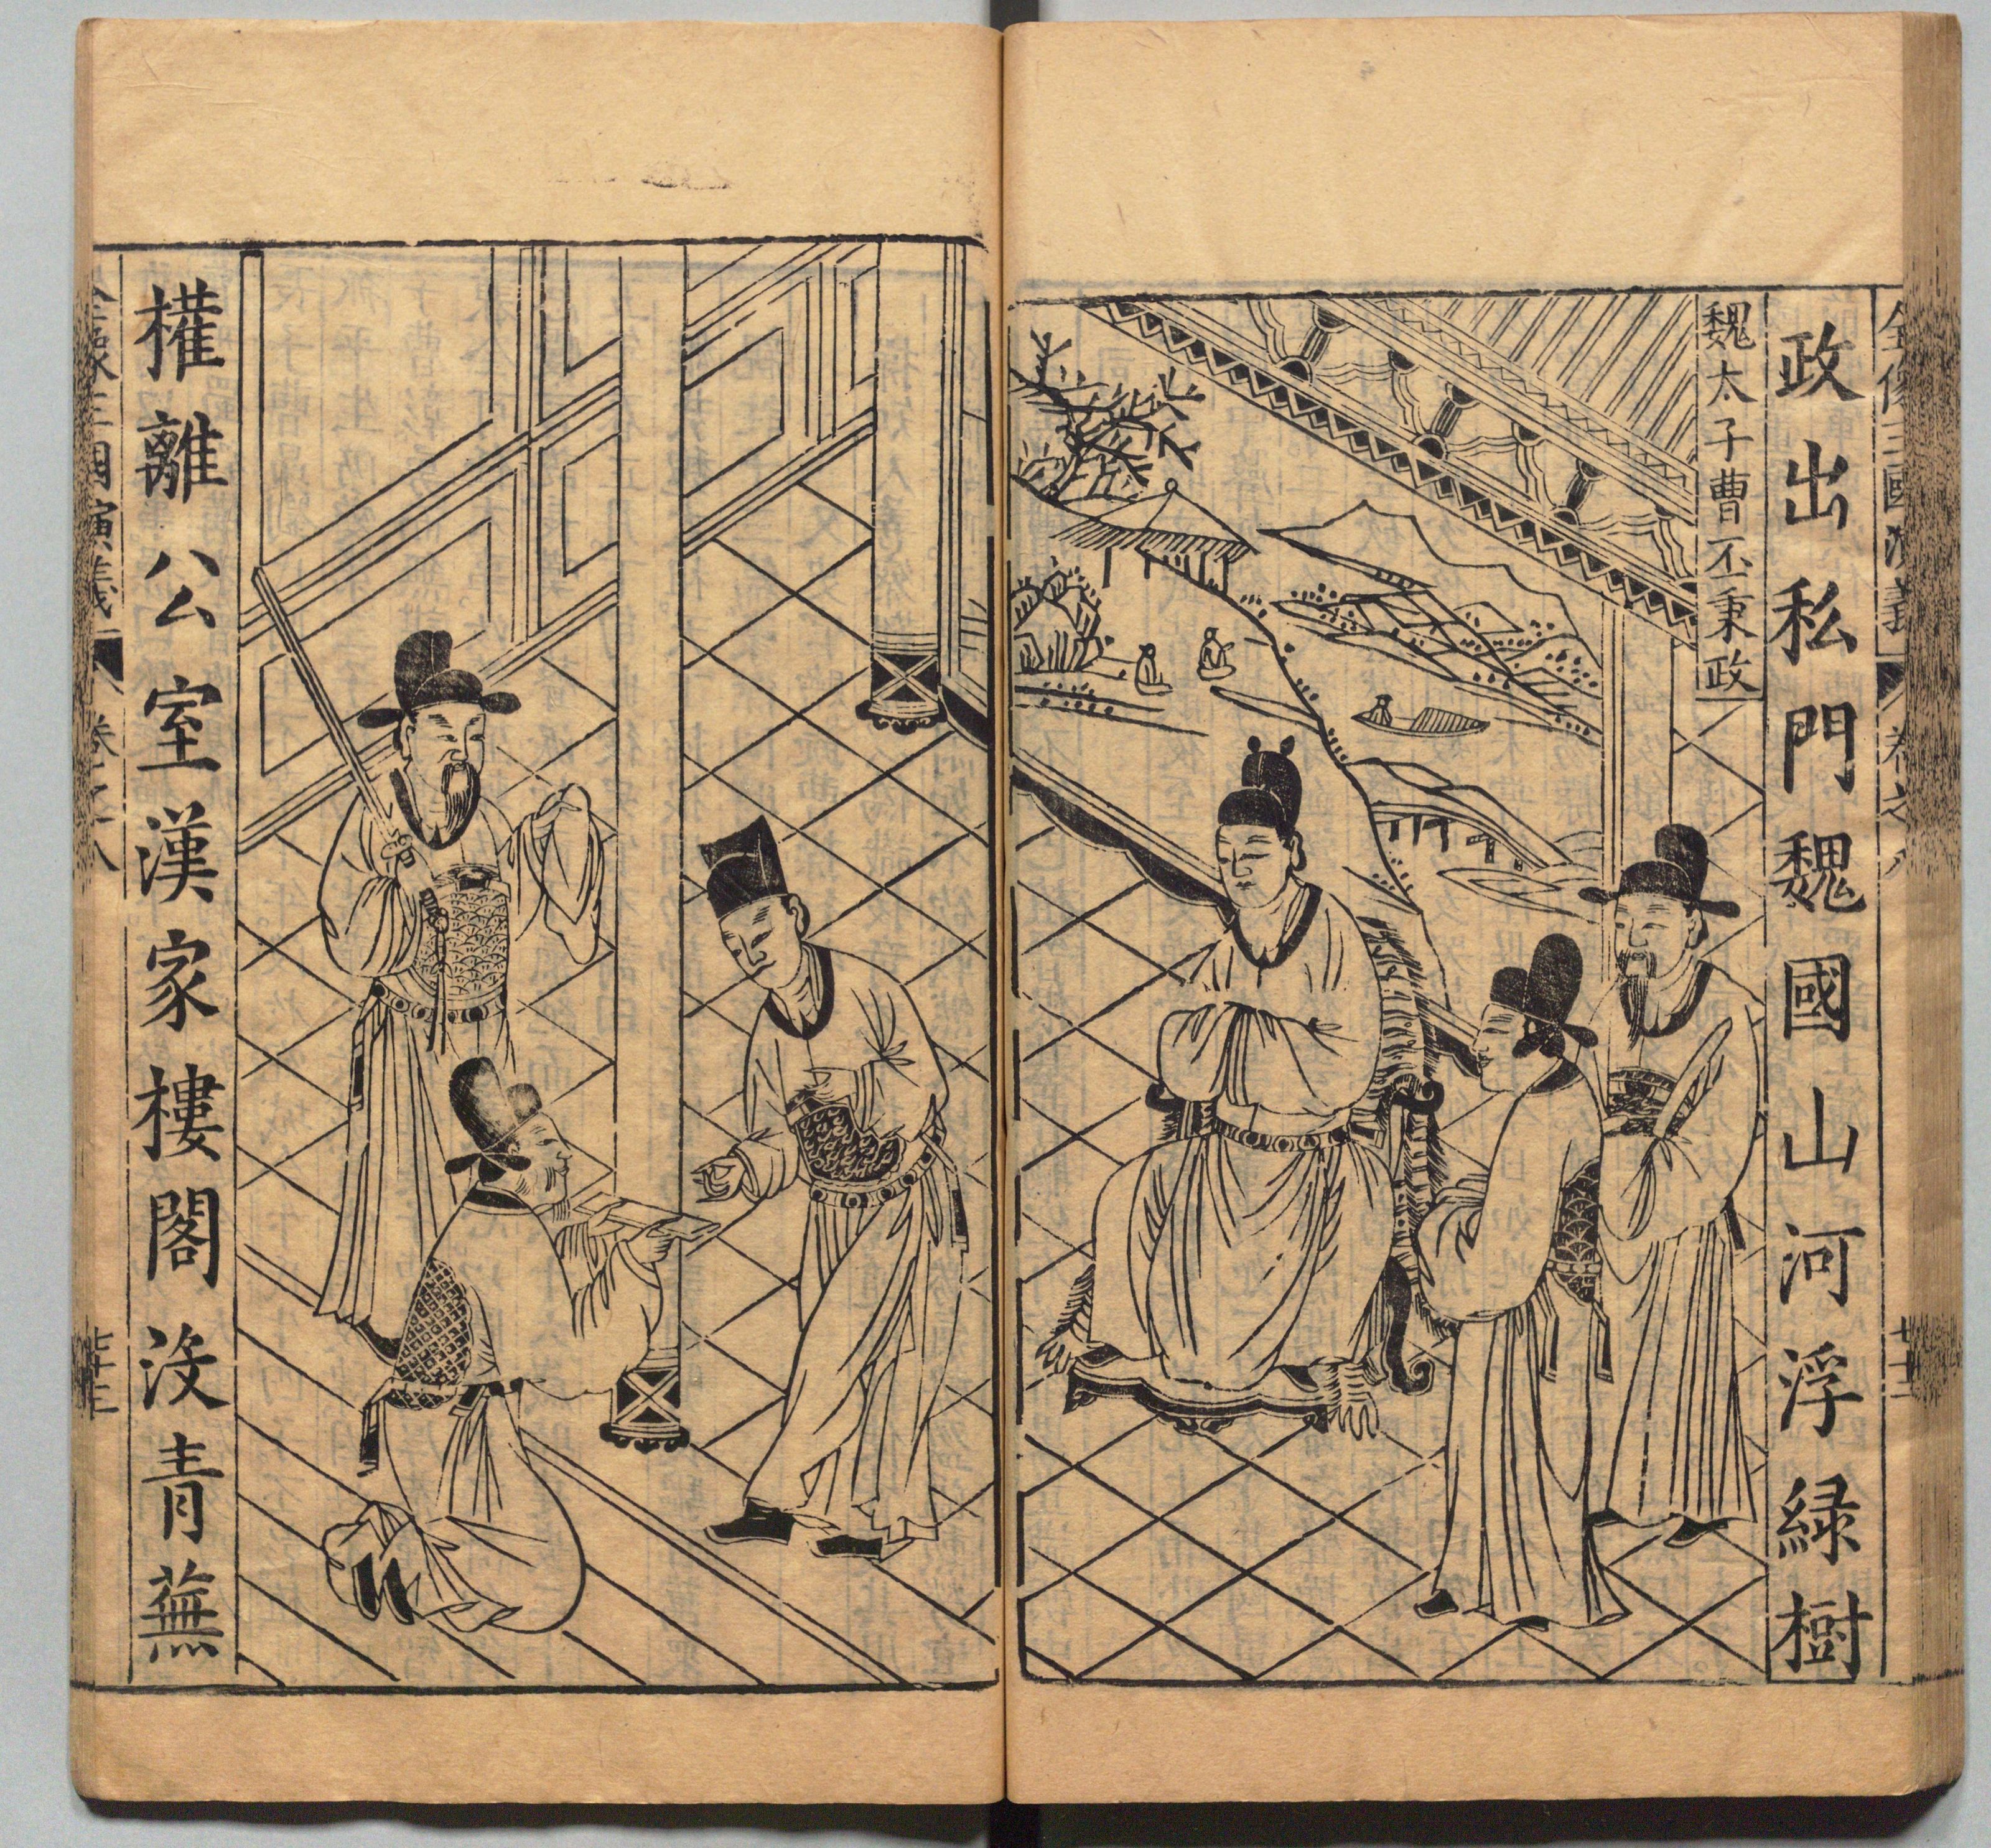 全像三國演義
卷之八
政出私門魏國山河浮緑樹
魏太子曹丕秉政
權離公室漢家樓閣没青蕪
全像三國演義
卷之八